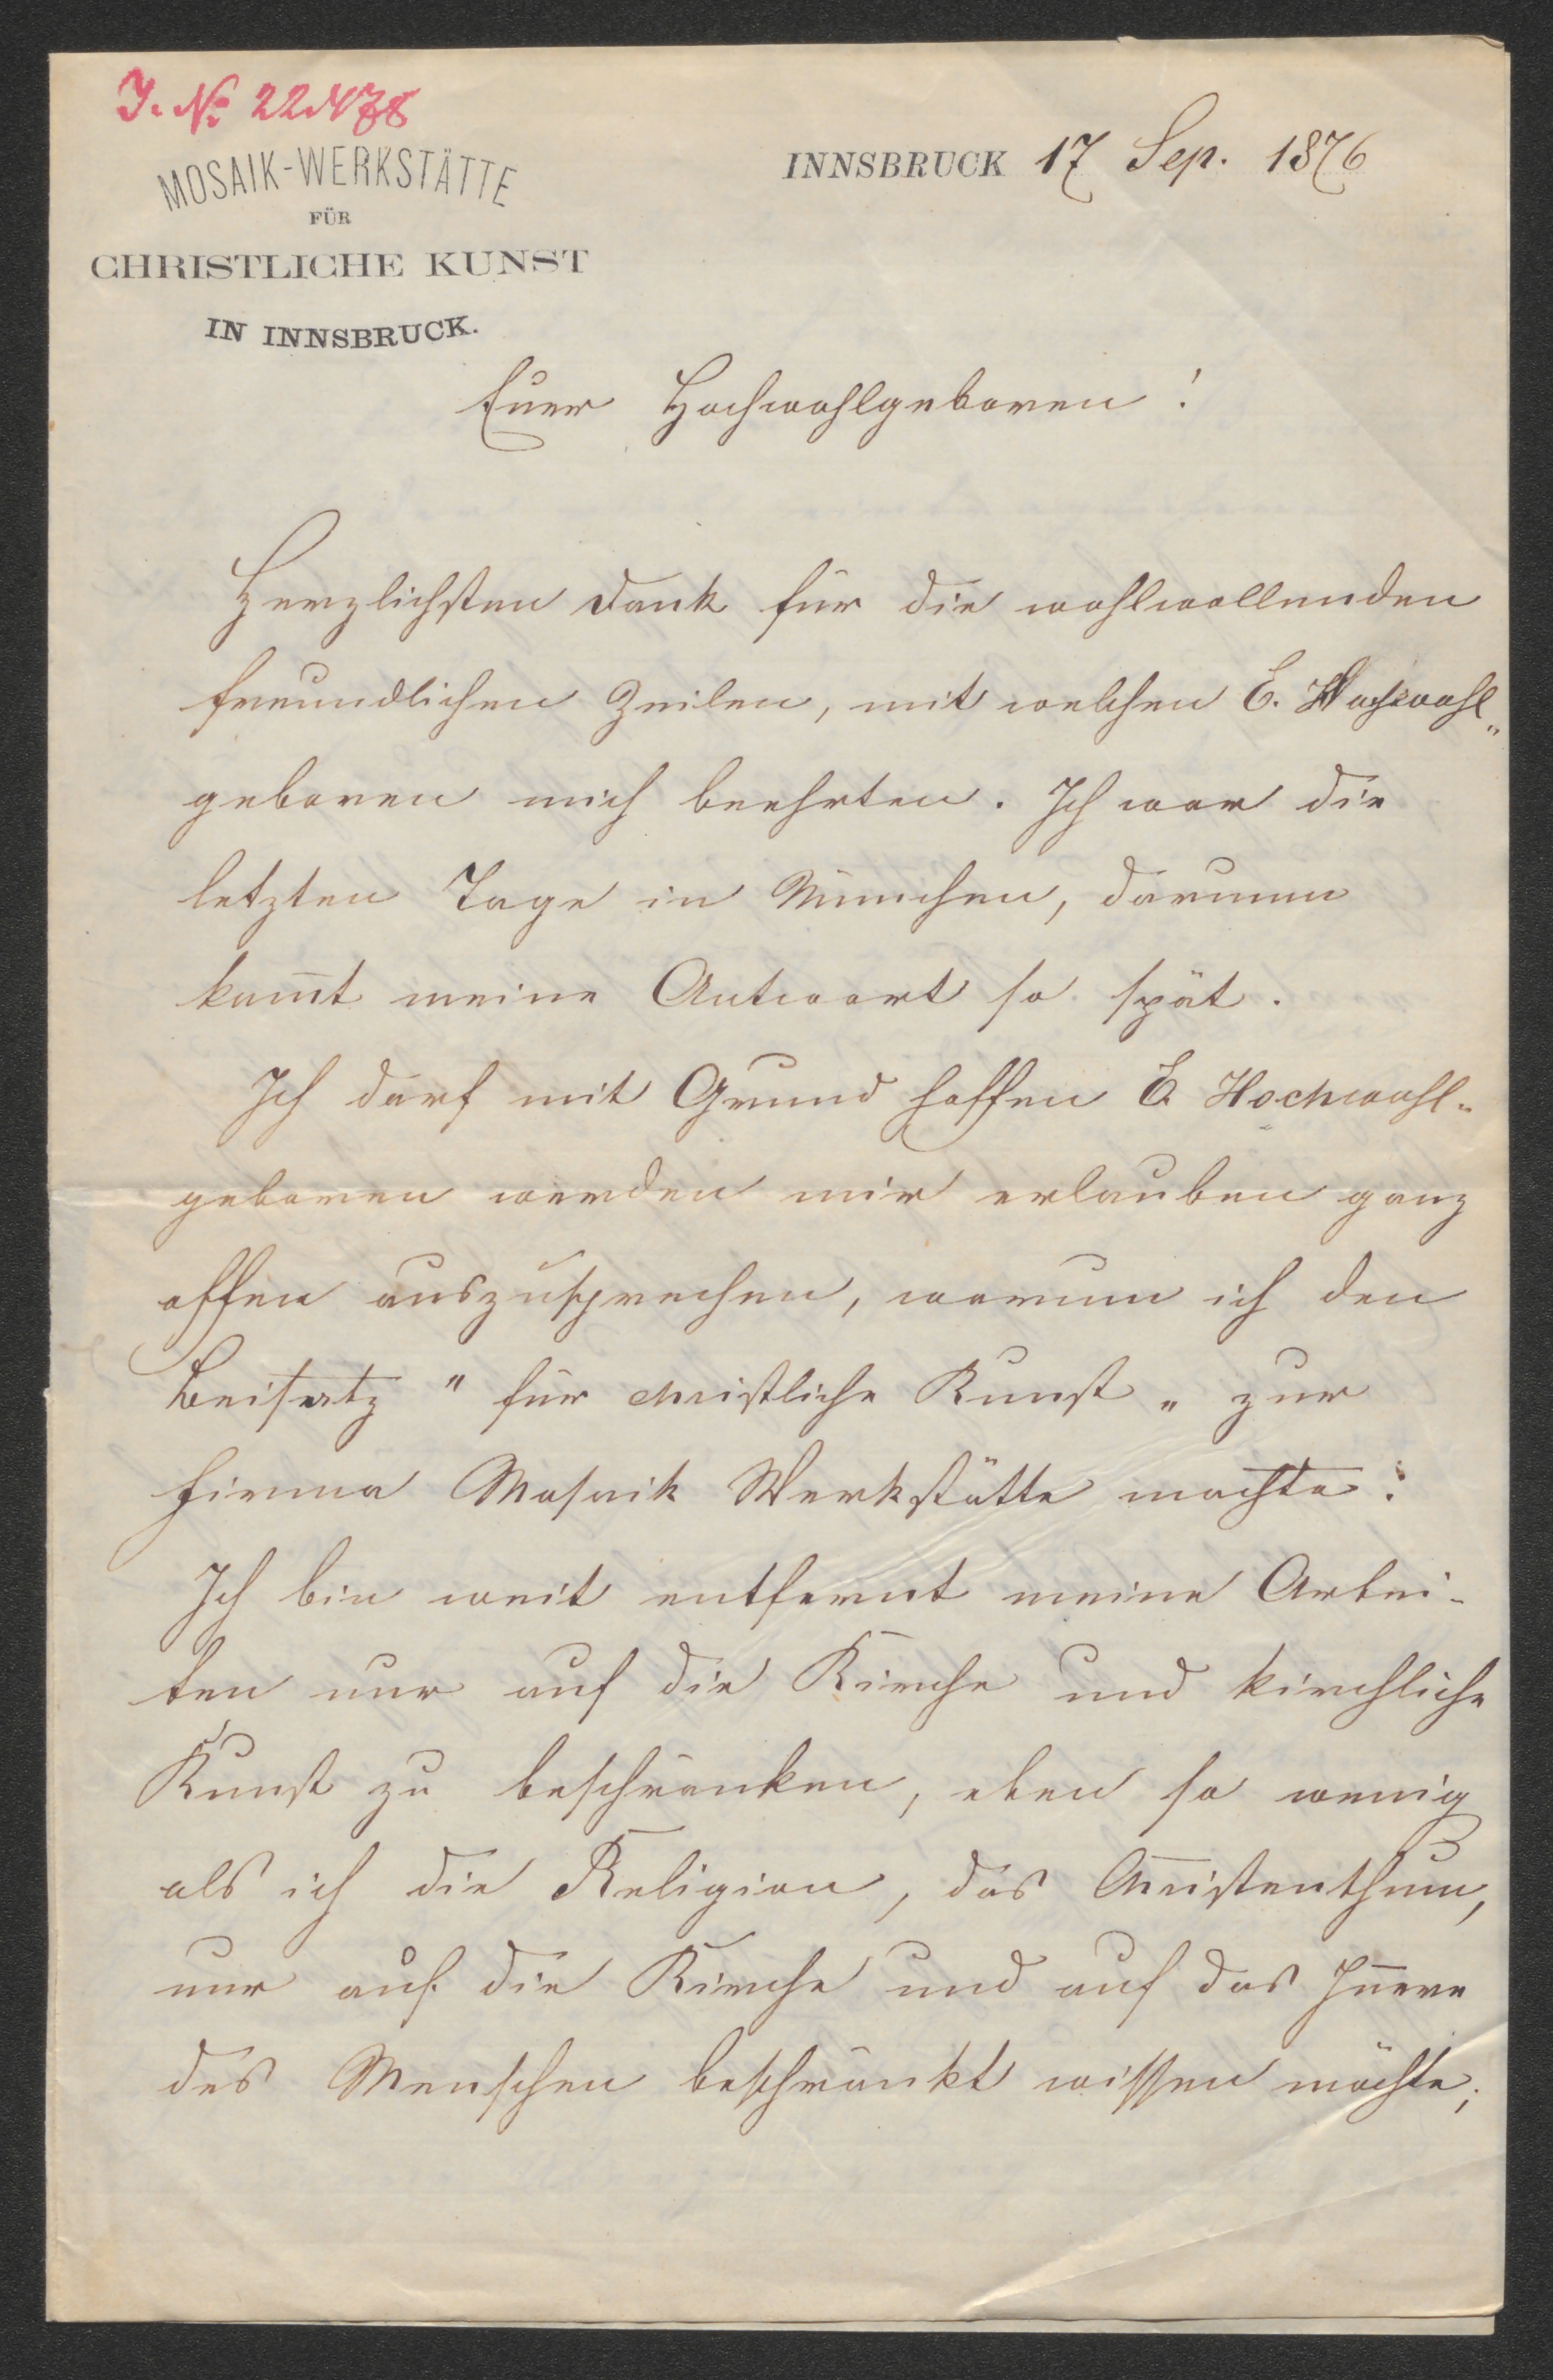 J. №. 22478
MOSAIK-WERKSTÄTTE
FÜR
CHRISTLICHE KUNST
IN INNSBRUCK.
INNSBRUCK 17 Sep. 1876
Euer Hochwohlgeboren!
Herzlichsten Dank für die wohlwollenden
freundlichen Zeilen, mit welchen E. Hochwohl„
geboren mich beehrten. Ich war die
letzten Tage in München, darum
kom̄t meine Antwort so spät.
Ich darf mit Grund hoffen E Hochwohl-
geboren werden mir erlauben ganz
offen auszusprechen, warum ich den
Beisatz "für christliche Kunst„ zur
Firma Mosaik Werkstätte machte:
Ich bin weit entfernt meine Arbei-
ten nur auf die Kirche und kirchliche
Kunst zu beschränken, eben so wenig
als ich die Religion, das Christenthum,
nur auf die Kirche und auf das Iñere
des Menschen beschränkt wissen möchte;